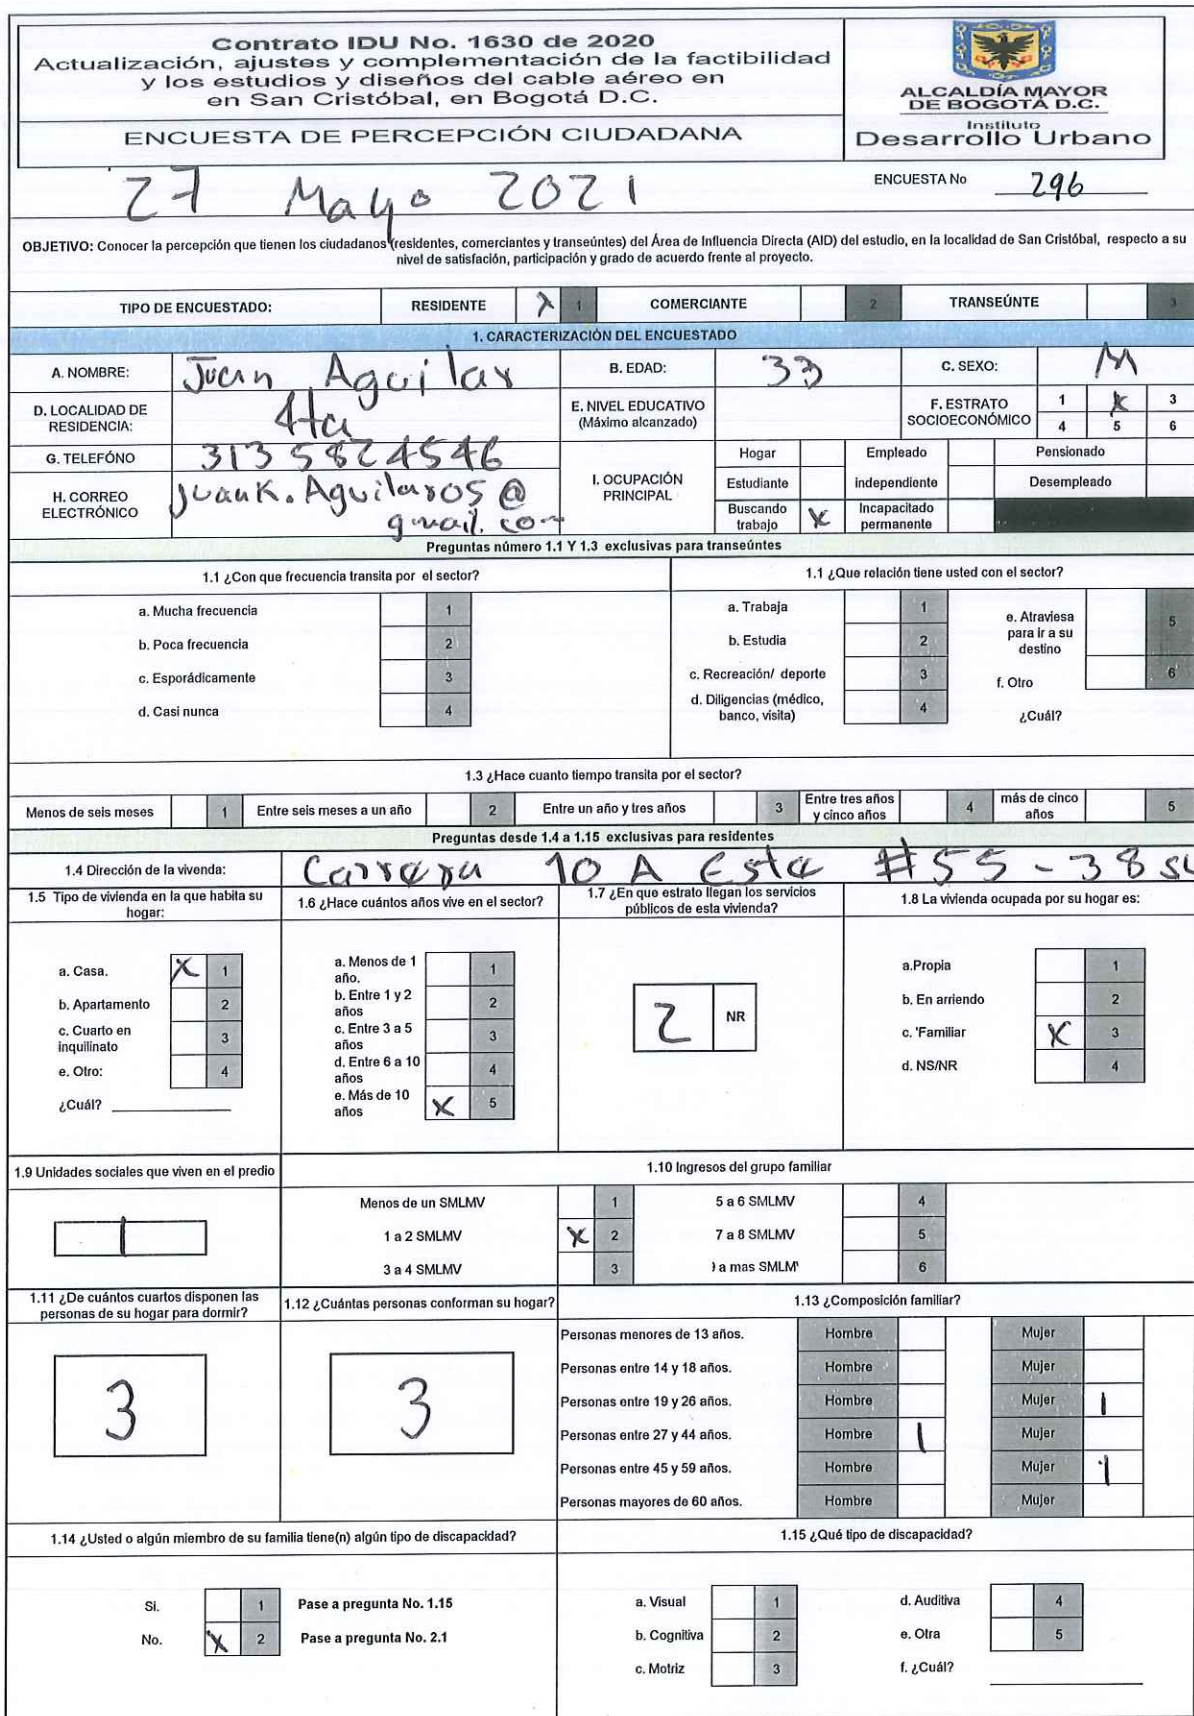 Contrato IDU No. 1630 de 2020
Actualización, ajustes y complementación de la factibilidad
y los estudios y diseños del cable aéreo en
en San Cristóbal, en Bogotá D.C.
ENCUESTA DE PERCEPCIÓN CIUDADANA
ALCALDÍA MAYOR
DE BOGOTÁ D.C.
Instituto
Desarrollo Urbano
27 Mayo 2021
ENCUESTA No 296
OBJETIVO: Conocer la percepción que tienen los ciudadanos (residentes, comerciantes y transeúntes) del Área de Influencia Directa (AID) del estudio, en la localidad de San Cristóbal, respecto a su
nivel de satisfacción, participación y grado de acuerdo frente al proyecto.
TIPO DE ENCUESTADO: RESIDENTE X 1 COMERCIANTE 2 TRANSEÚNTE 3
1. CARACTERIZACIÓN DEL ENCUESTADO
A. NOMBRE: Juan Aguilar B. EDAD: 33 C. SEXO: M
D. LOCALIDAD DE RESIDENCIA: 4ta E. NIVEL EDUCATIVO (Máximo alcanzado) F. ESTRATO SOCIOECONÓMICO 1 X 3
4 5 6
G. TELEFÓNO 3135824546
H. CORREO ELECTRÓNICO juank.Aguilar05@
gmail.com
I. OCUPACIÓN PRINCIPAL
Hogar Empleado Pensionado
Estudiante independiente Desempleado
Buscando trabajo X Incapacitado permanente
Preguntas número 1.1 Y 1.3 exclusivas para transeúntes
1.1 ¿Con que frecuencia transita por el sector?
a. Mucha frecuencia 1
b. Poca frecuencia 2
c. Esporádicamente 3
d. Casi nunca 4
1.1 ¿Que relación tiene usted con el sector?
a. Trabaja 1
b. Estudia 2
c. Recreación/ deporte 3
d. Diligencias (médico, banco, visita) 4
e. Atraviesa para ir a su destino 5
f. Otro 6
¿Cuál?
1.3 ¿Hace cuanto tiempo transita por el sector?
Menos de seis meses 1 Entre seis meses a un año 2 Entre un año y tres años 3 Entre tres años y cinco años 4 más de cinco años 5
Preguntas desde 1.4 a 1.15 exclusivas para residentes
1.4 Dirección de la vivenda: Carrera 10 A Este #55 - 38 su
1.5 Tipo de vivienda en la que habita su hogar:
a. Casa. X 1
b. Apartamento 2
c. Cuarto en inquilinato 3
e. Otro: 4
¿Cuál?
1.6 ¿Hace cuántos años vive en el sector?
a. Menos de 1 año. 1
b. Entre 1 y 2 años 2
c. Entre 3 a 5 años 3
d. Entre 6 a 10 años 4
e. Más de 10 años X 5
1.7 ¿En que estrato llegan los servicios públicos de esta vivienda?
2 NR
1.8 La vivienda ocupada por su hogar es:
a.Propia 1
b. En arriendo 2
c. 'Familiar X 3
d. NS/NR 4
1.9 Unidades sociales que viven en el predio
1
1.10 Ingresos del grupo familiar
Menos de un SMLMV 1 5 a 6 SMLMV 4
1 a 2 SMLMV X 2 7 a 8 SMLMV 5
3 a 4 SMLMV 3 a mas SMLM 6
1.11 ¿De cuántos cuartos disponen las personas de su hogar para dormir?
3
1.12 ¿Cuántas personas conforman su hogar?
3
1.13 ¿Composición familiar?
Personas menores de 13 años. Hombre Mujer
Personas entre 14 y 18 años. Hombre Mujer
Personas entre 19 y 26 años. Hombre Mujer 1
Personas entre 27 y 44 años. Hombre 1 Mujer
Personas entre 45 y 59 años. Hombre Mujer 1
Personas mayores de 60 años. Hombre Mujer
1.14 ¿Usted o algún miembro de su familia tiene(n) algún tipo de discapacidad?
Si. 1 Pase a pregunta No. 1.15
No. X 2 Pase a pregunta No. 2.1
1.15 ¿Qué tipo de discapacidad?
a. Visual 1 d. Auditiva 4
b. Cognitiva 2 e. Otra 5
c. Motriz 3 f. ¿Cuál?